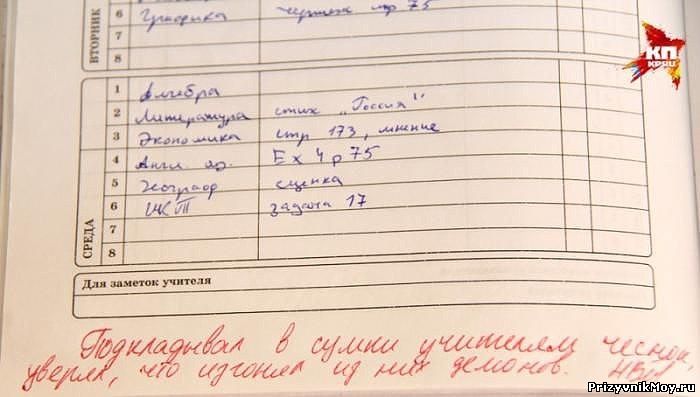 ВТОРНИК
6 Графика чертеж стр 75
7
8
СРЕДА
1 Алгебра
2 Литература стих „Россия"
3 Экономика стр 173, мнение
4 Англ. яз. Ex 4 p 75
5 Географ сценка
6 ИКТ задача 17
7
8
Для заметок учителя
Подкладывал в сумки учителям чеснок,
уверял, что изгонял из них демонов.
КП
KP.RU
PrizyvnikMoy.ru